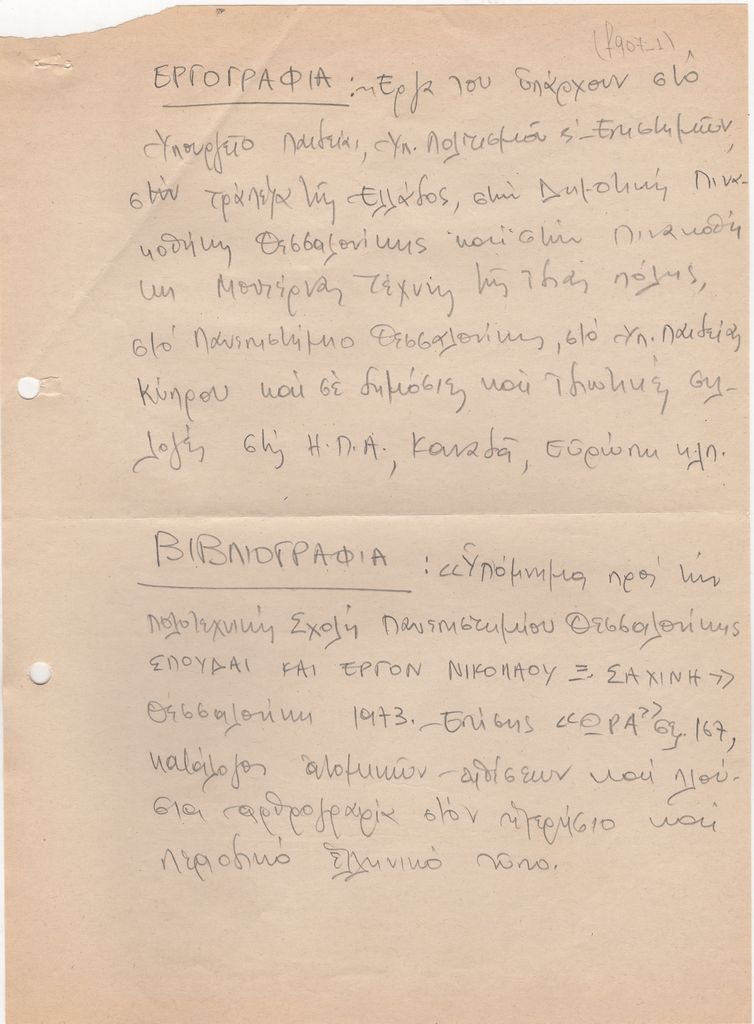 (f907-1)
ΕΡΓΟΓΡΑΦΙΑ : Έργα του υπάρχουν στό
Υπουργείο Παιδείας, Υπ. Πολιτισμού & Επιστημών,
στήν Τράπεζα τής Ελλάδος, στήν Δημοτική Πινα-
κοθήκη Θεσσαλονίκης καί στήν Πινακοθή
κη Μοντέρνας Τέχνης τής ίδιας πόλης,
στό Πανεπιστήμιο Θεσσαλονίκης, στό Υπ. Παιδείας
Κύπρου καί σέ δημόσιες καί ιδιωτικές συλ-
λογές στίς Η.Π.Α., Καναδά, Ευρώπη κλπ.
ΒΙΒΛΙΟΓΡΑΦΙΑ : «Υπόμνημα πρός τήν
Πολυτεχνική Σχολή Πανεπιστημίου Θεσσαλονίκης
ΣΠΟΥΔΑΙ ΚΑΙ ΕΡΓΟΝ ΝΙΚΟΛΑΟΥ Ξ. ΣΑΧΙΝΗ»
Θεσσαλονίκη 1973. Επίσης «ΩΡΑ» σελ. 167,
κατάλογος ατομικών εκθέσεων καί πλού-
σια αρθρογραφία στόν ημερήσιο καί
περιοδικό ελληνικό τύπο.